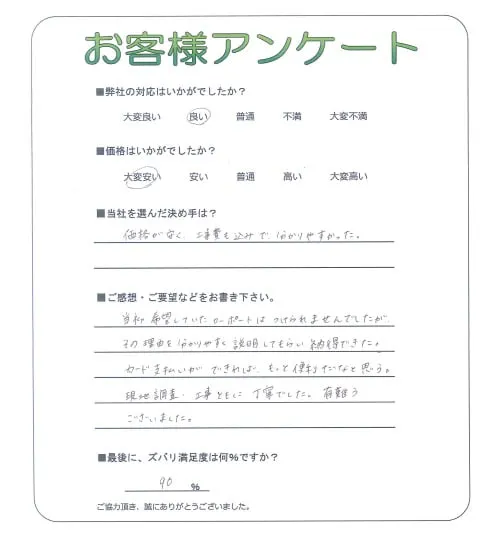 お客様アンケート
■弊社の対応はいかがでしたか？
大変良い 良い 普通 不満 大変不満
■価格はいかがでしたか？
大変安い 安い 普通 高い 大変高い
■当社を選んだ決め手は？
価格が安く、工事費も込みで、分かりやすかった。
■ご感想・ご要望などをお書き下さい。
当初希望していたカーポートはつけられませんでしたが
その理由を分かりやすく説明してもらい納得できた。
カード支払いができれば、もっと便利だなと思う。
現地調査・工事ともに丁寧でした。有難う
ございました。
■最後に、ズバリ満足度は何％ですか？
90 ％
ご協力頂き、誠にありがとうございました。